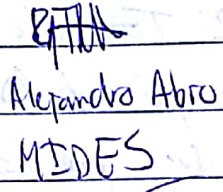 Alejandro Abro
MIDES